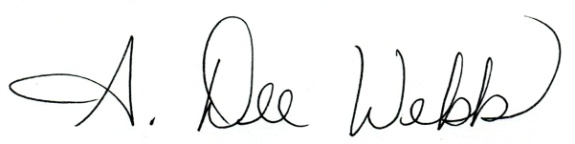 A. Dee Webb